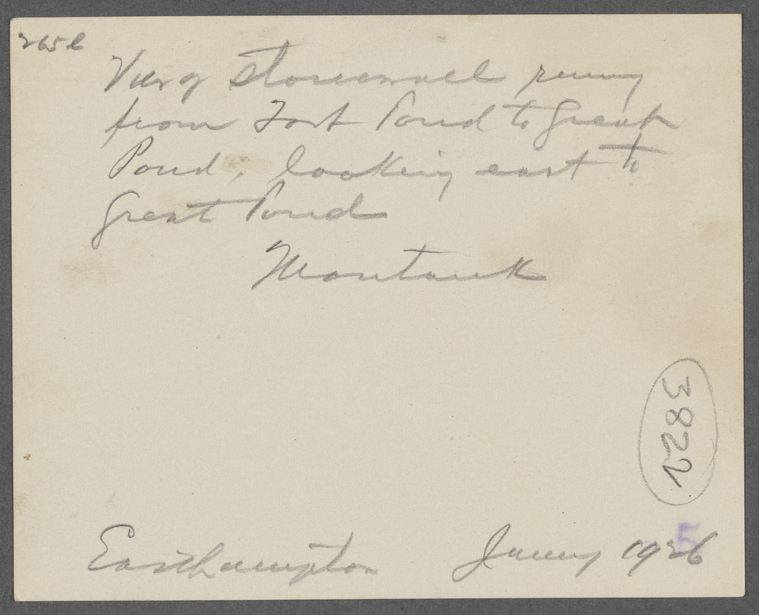 265e
View of stonewall runng
from Fort Pond to Great
Pond, looking east to
Great Pond
Montauk
3822
Easthampton January 1926